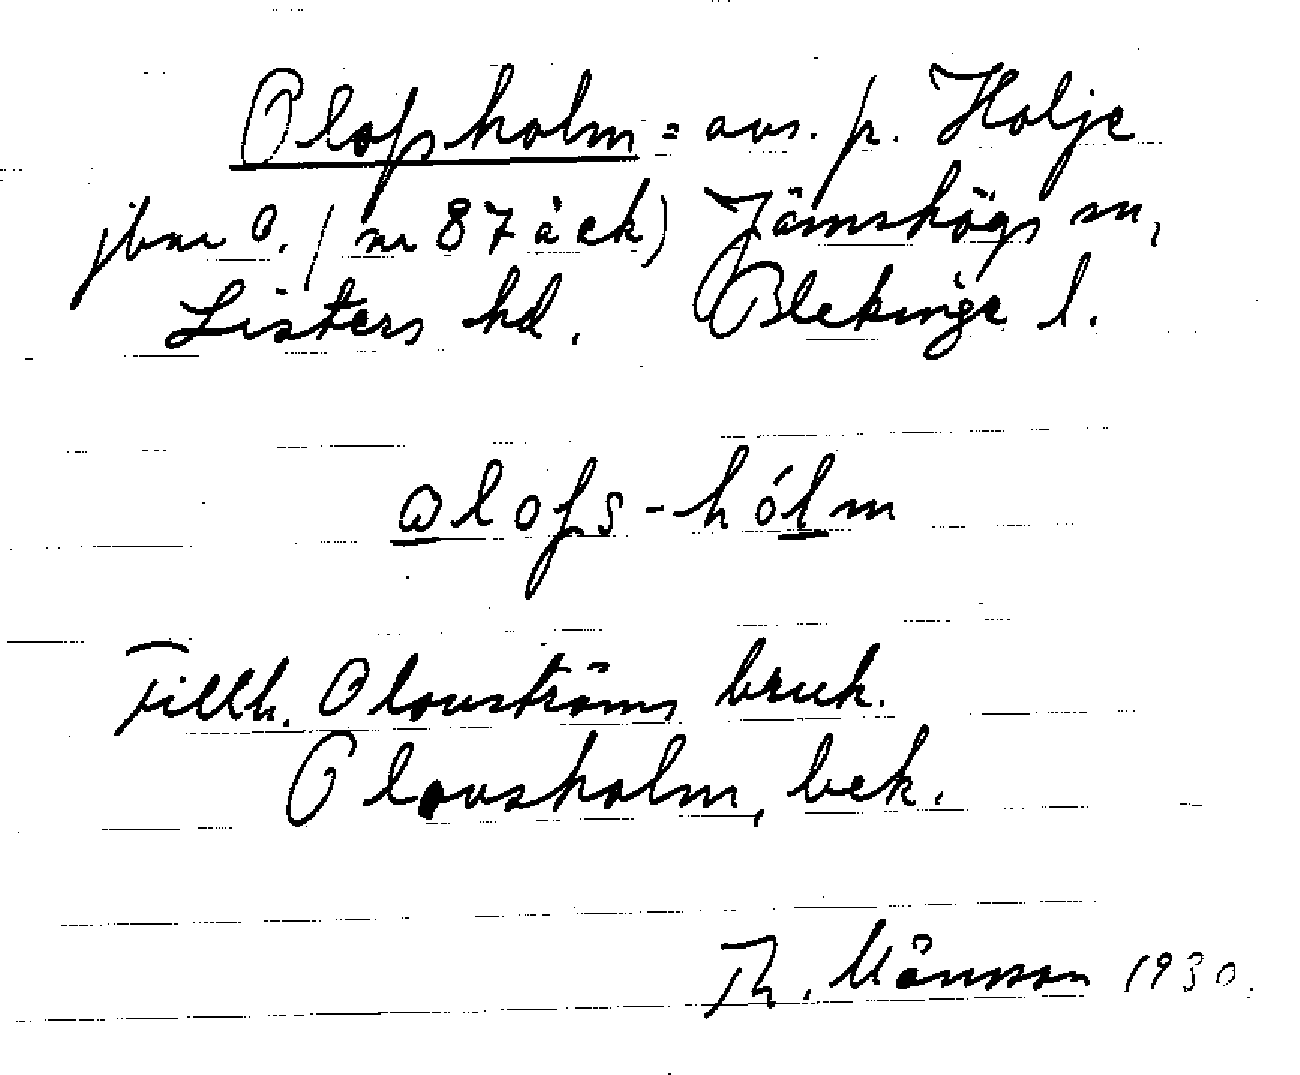 Olofsholm = avs. p. Holje
jbnr 0. (nr 87 à ek) Jämshögs sn,
Listers hd. Blekinge l.
ωlofs-hólm
Tillh. Olovströms bruk.
Olovsholm, bek.
Th. Månsson 1930.